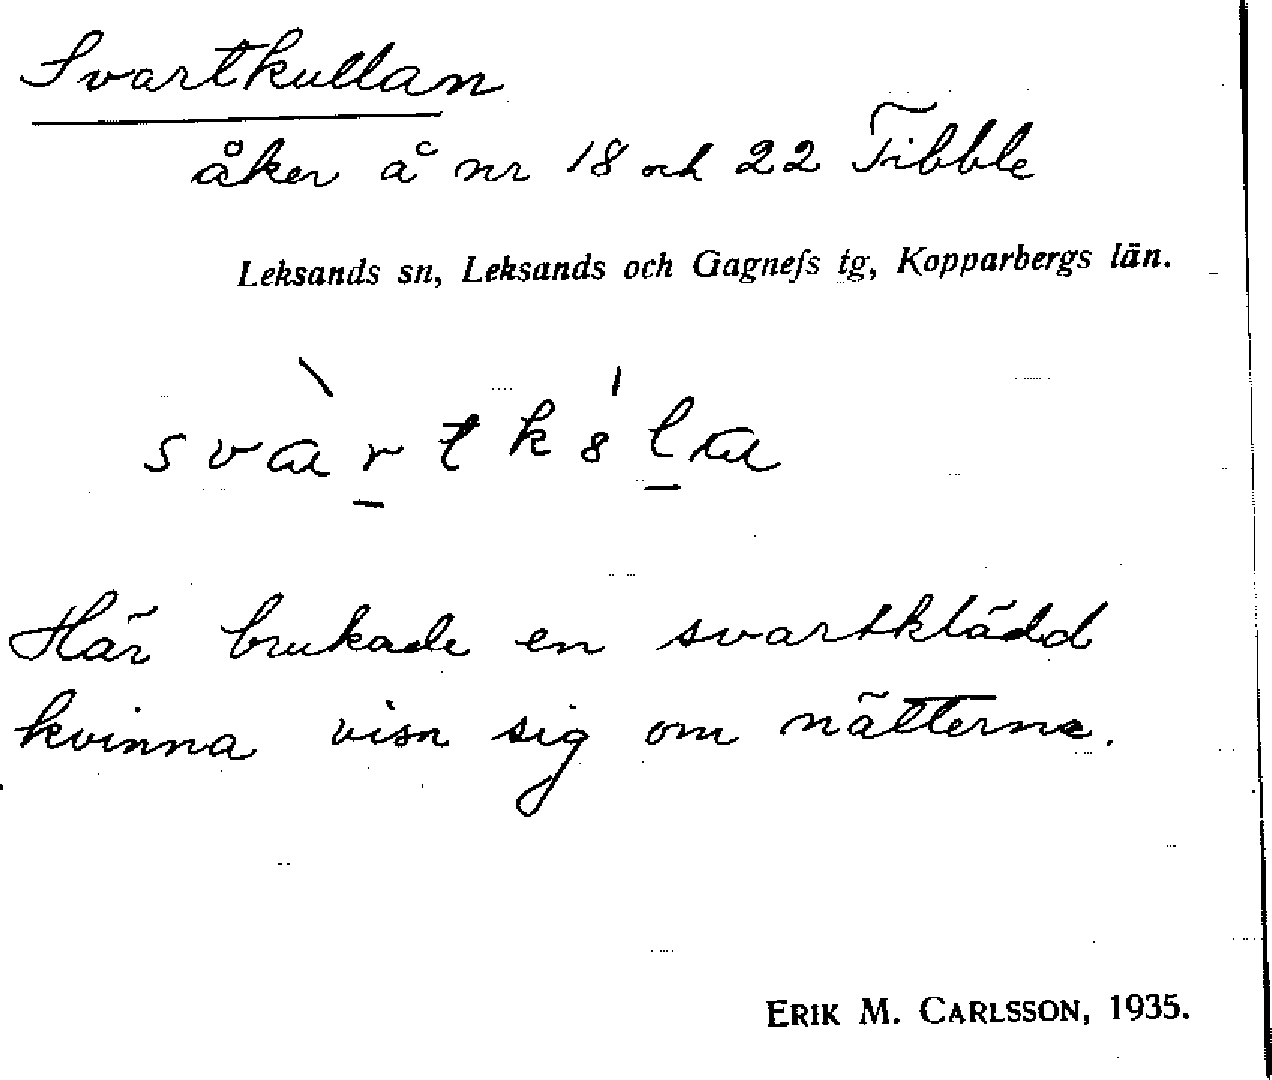 Svartkullan
åker å nr 18 och 22 Tibble
Leksands sn, Leksands och Gagnefs tg, Kopparbergs län.
svàr̠tk8́l̠a
Här brukade en svartklädd
kvinna visa sig om nätterna.
ERIK M. CARLSSON, 1935.